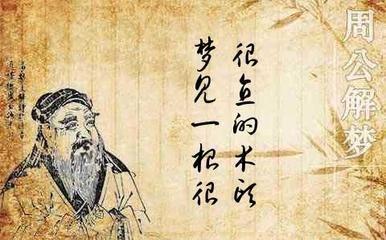 周公解梦
梦见一根很
很直的木头